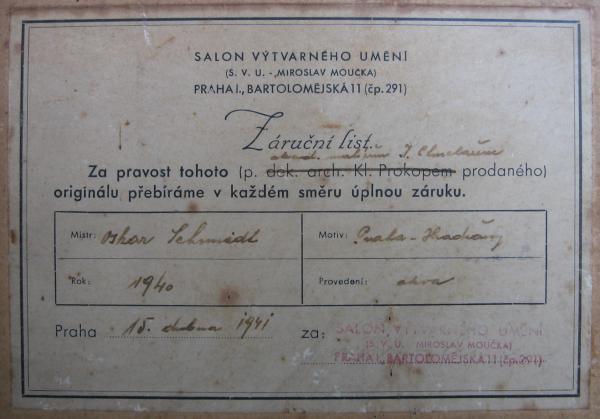 SALON VÝTVARNÉHO UMĚNÍ
(S. V. U. - „MIROSLAV MOUČKA)
PRAHA I., BARTOLOMĚJSKÁ 11 (čp. 291)
Záruční list.
akad. malířem J. Chmelařem
Za pravost tohoto (p. dck. arch. Kl. Prokopem prodaného)
originálu přebíráme v každém směru úplnou záruku.
Mistr: Oskar Schmidt
Motiv: Praha - Hradčany
Rok: 1940
Provedení: akva
Praha 15. dubna 1941 za: SALON VÝTVARNÉHO UMĚNÍ
(S. V. U. MIROSLAV MOUČKA)
PRAHA I., BARTOLOMĚJSKÁ 11 (čp. 291)